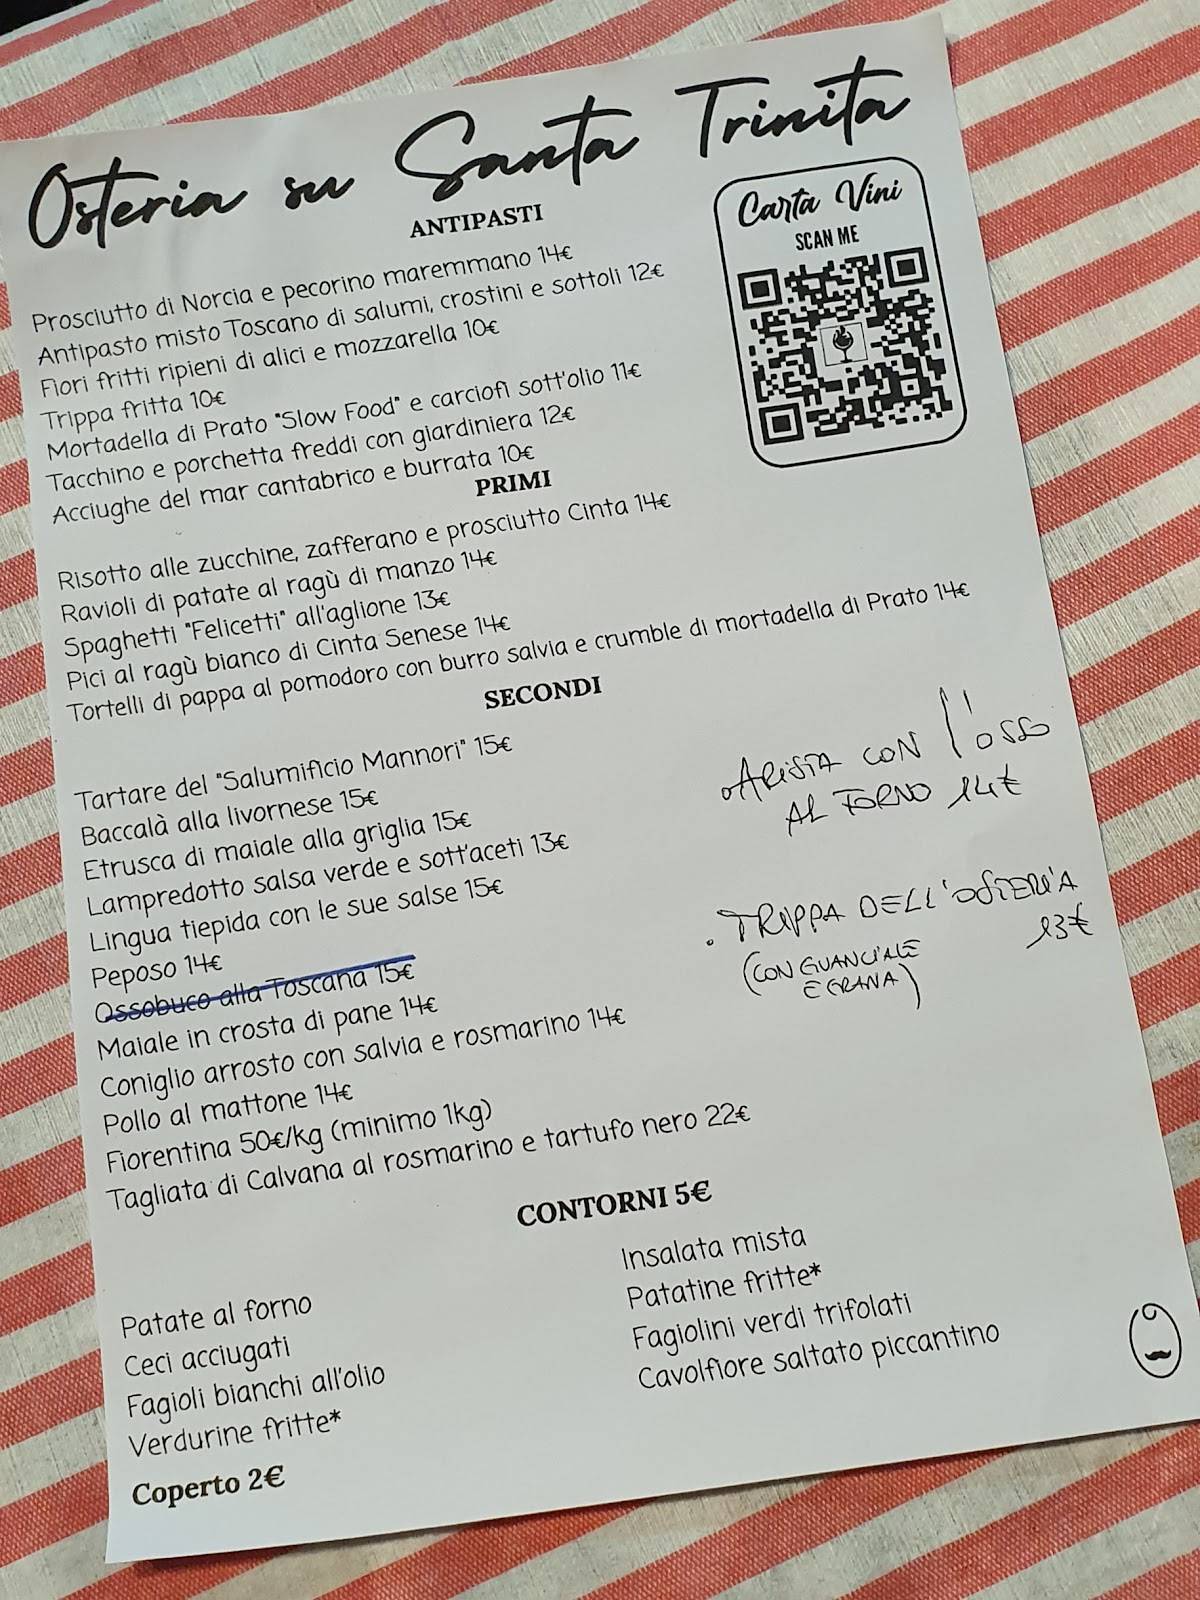 Osteria su Santa Trinita
Carta Vini
SCAN ME
ANTIPASTI
Prosciutto di Norcia e pecorino maremmano 14€
Antipasto misto Toscano di salumi, crostini e sottoli 12€
Fiori fritti ripieni di alici e mozzarella 10€
Trippa fritta 10€
Mortadella di Prato "Slow Food" e carciofi sott'olio 11€
Tacchino e porchetta freddi con giardiniera 12€
Acciughe del mar cantabrico e burrata 10€
PRIMI
Risotto alle zucchine, zafferano e prosciutto Cinta 14€
Ravioli di patate al ragù di manzo 14€
Spaghetti "Felicetti" all'aglione 13€
Pici al ragù bianco di Cinta Senese 14€
Tortelli di pappa al pomodoro con burro salvia e crumble di mortadella di Prato 14€
SECONDI
Tartare del "Salumificio Mannori" 15€
Baccalà alla livornese 15€
Etrusca di maiale alla griglia 15€
Lampredotto salsa verde e sott'aceti 13€
Lingua tiepida con le sue salse 15€
Peposo 14€
Ossobuco alla Toscana 15€
Maiale in crosta di pane 14€
Coniglio arrosto con salvia e rosmarino 14€
Pollo al mattone 14€
Fiorentina 50€/kg (minimo 1kg)
Tagliata di Calvana al rosmarino e tartufo nero 22€
ARISTA CON l'OSSO
AL FORNO 14€
. TRIPPA DELL'OSTERIA
13€
(CON GUANCIALE
E GRANA)
CONTORNI 5€
Patate al forno
Ceci acciugati
Fagioli bianchi all'olio
Verdurine fritte*
Insalata mista
Patatine fritte*
Fagiolini verdi trifolati
Cavolfiore saltato piccantino
Coperto 2€